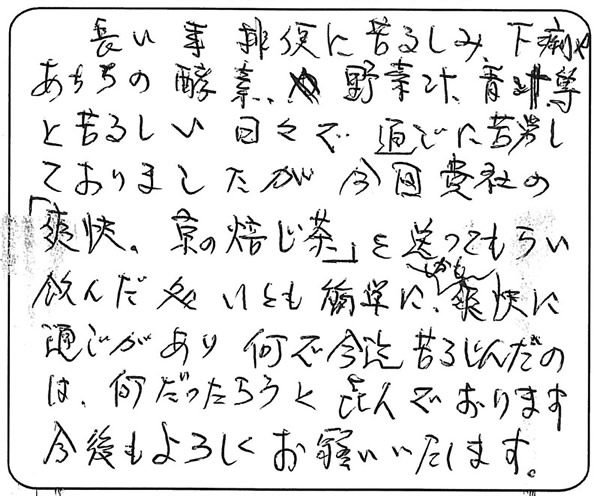 長い事排便に苦るしみ、下痢や
あちちの酵素、野菜汁、青汁等
と苦るしい日々で通じに苦労し
ておりましたが今回貴社の
「爽快。京の焙じ茶」を送ってもらい
飲んだ処いとも簡単に、しかも爽快に
通じがあり何で今迄苦るしんだの
は、何だったろうと喜んでおります
今後もよろしくお願いいたします。